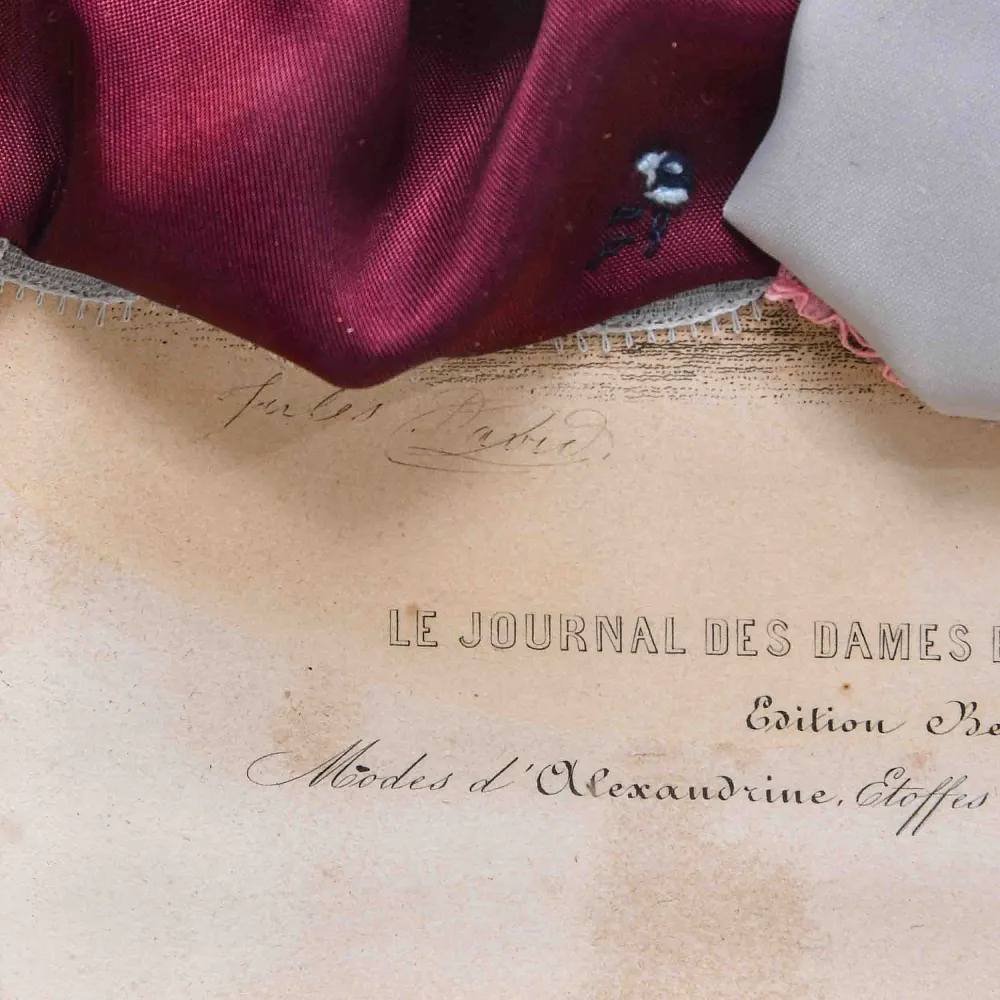 Jules David
LE JOURNAL DES DAMES
Edition
Modes d'Alexandrine, Etoffes